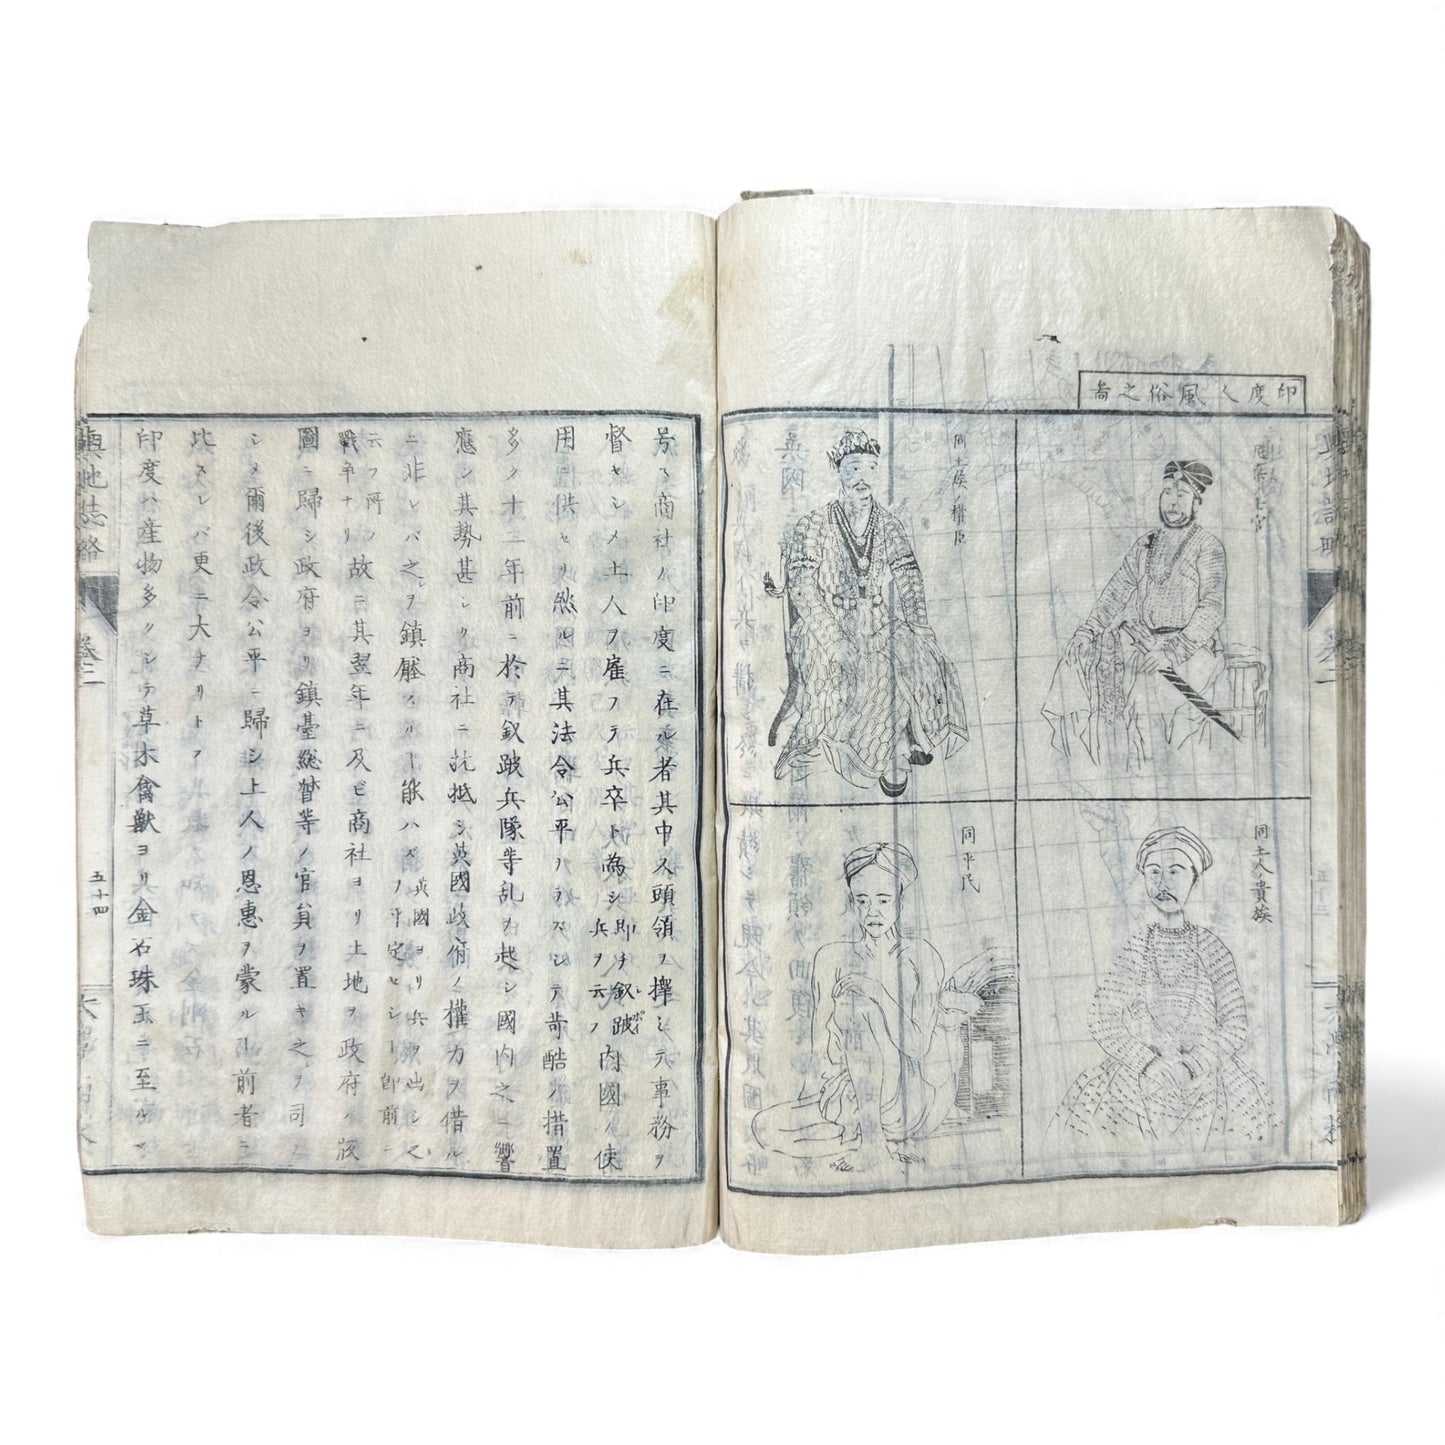 印度人風俗之啚
同土侯ノ權臣
同土人貴族
同平民
号ス商社ノ印度ニ在ル者其中ヨリ頭領ヲ擇ミテ事務ヲ
督セシメ土人ヲ雇フテ兵卒ト為シ即チ釵跛内國ノ使
兵ヲ云フ
用ニ供セリ然ルニ其法令公平ナラズシテ苛酷ノ措置
多ク十二年前ニ於テ釵跛兵隊等乱ヲ起シ國内之ニ響
應シ其勢甚シク商社ニ抗抵シ英國政府ノ權力ヲ借ル
ニ非レバ之ヲ鎮壓スル能ハズ英國ヨリ兵ヲ出シ之
ヲ平定セシハ即前ニ
云フ所ノ
戰争ナリ故ニ其翌年ニ及ビ商社ヨリ土地ヲ政府ノ版
圖ニ歸シ政府ヨリ鎮臺総督等ノ官貟ヲ置キ之ヲ司ラ
シメ爾後政令公平ニ歸シ土人ノ恩惠ヲ蒙ル前者ニ
比スレバ更ニ大ナリトス
印度ハ産物多クシテ草木禽獸ヨリ金石珠玉ニ至ルマ
輿地誌略
卷二
五十四